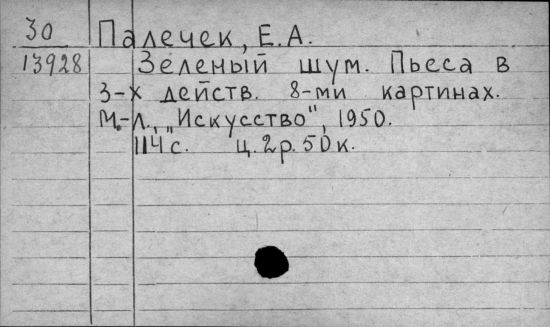 30 Палечек, Е.А.
13928 Зеленый шум. Пьеса в
3-х действ. 8-ми картинах.
М.-Л., "Искусство", 1950.
114 с. ц. 2 р. 50 к.